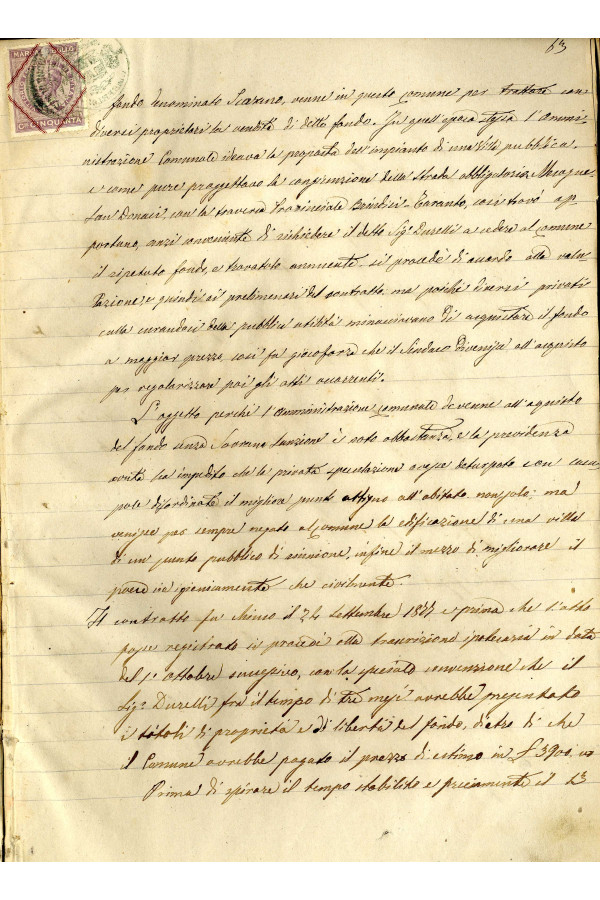 63
MARCA DA BOLLO
CI CINQUANTA
fondo denominato Scazano, venne in questo comune per trattare con
diversi proprietari la vendita di detto fondo. In quell'epoca stessa l'Ammi
nistrazione Comunale ideava la proposta dell'impianto di una Villa pubblica.
e come pure progettava la congiunzione della strada obbligatoria Mesagne
San Donaci, con la traversa Provinciale Brindisi Taranto, così trovò op
portuno, anzi conveniente di richiedere il detto Sig. Durelli a cedere al comune
il ripetuto fondo, e trovatolo annuente si procedè di accordo alla valu
tazione e quindi ai preliminari del contratto, ma poichè diversi privati
nulla curandosi della pubblica utilità minacciavano di acquistare il fondo
a maggior prezzo, così fu giocoforza che il Sindaco divenisse all'acquisto
per regolarizzare poi gli atti occorrenti.
L'oggetto perchè l'amministrazione comunale devenne all'acquisto
del fondo senza Sovrana sanzione è noto abbastanza, e la previdenza
avuta ha impedito che la privata speculazione avesse deturpato con casu
pole disordinate il migliore punto attiguo all'abitato non solo; ma
venisse per sempre negato al comune la edificazione di una villa
di un punto pubblico di riunione, infine il mezzo di migliorare il
paese sia igienicamente che civilmente.
Il contratto fu chiuso il 24 settembre 1877 e prima che l'atto
fosse registrato si procedè alla trascrizione ipotecaria in data
del 1° ottobre successivo, con la speciale convenzione che il
Sig. Durelli fra il tempo di tre mesi avrebbe presentato
i titoli di proprietà e di libertà del fondo, dietro di che
il Comune avrebbe pagato il prezzo di estimo in £ 3900.
Prima di spirare il tempo stabilito e precisamente il